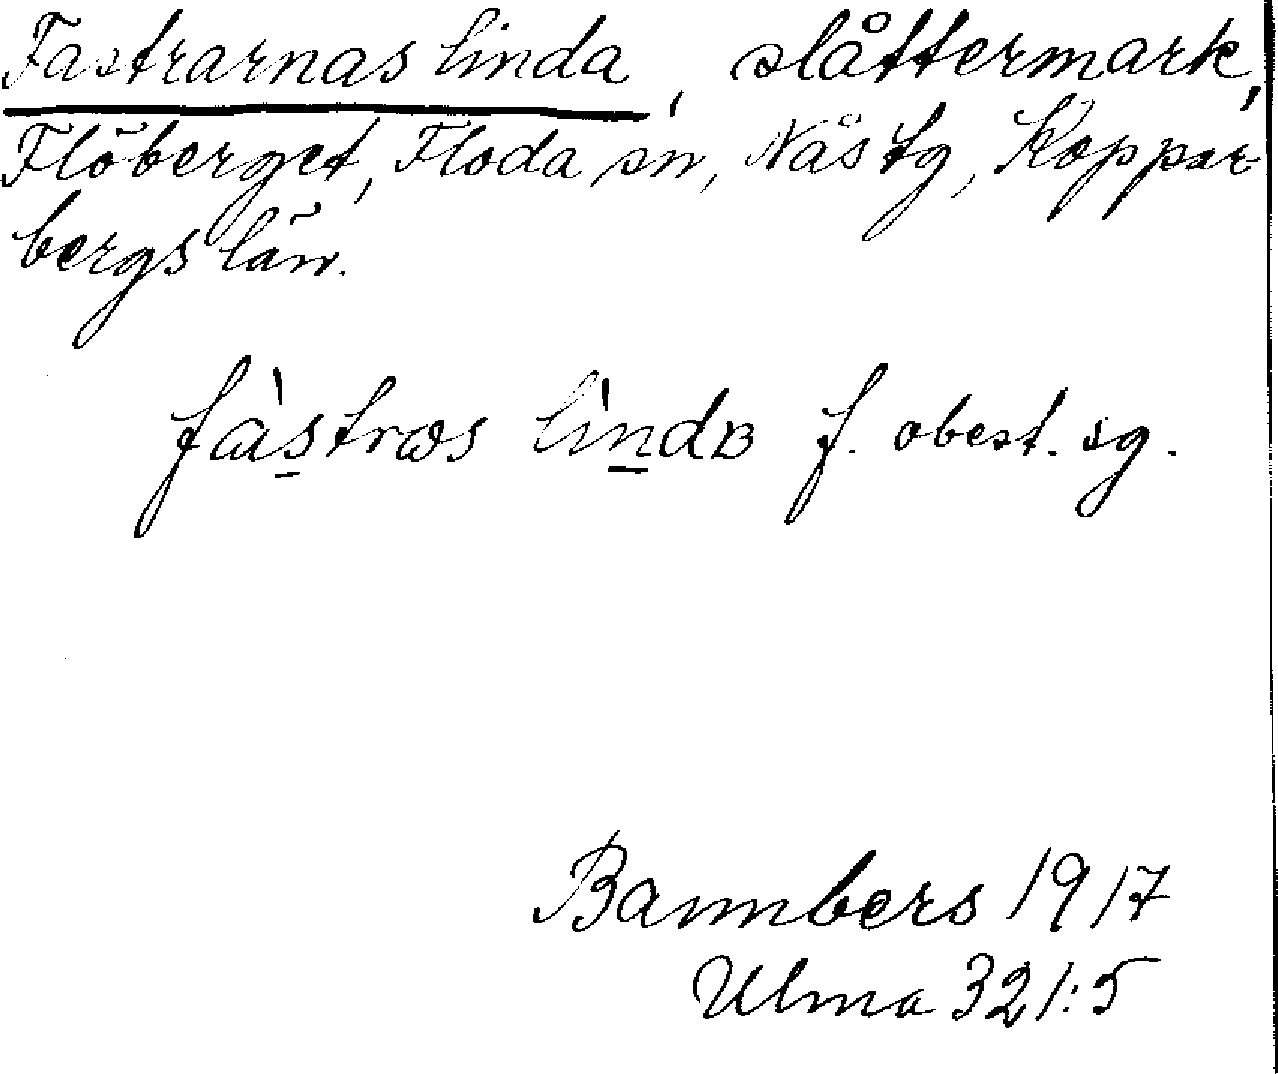 Fastrarnas linda, slåttermark,
Flöberget, Floda sn, Nås tg, Koppar-
bergs län.
fàstras lìndɞ f. obest. sg.
Bannbers 1917
Ulma 321:5